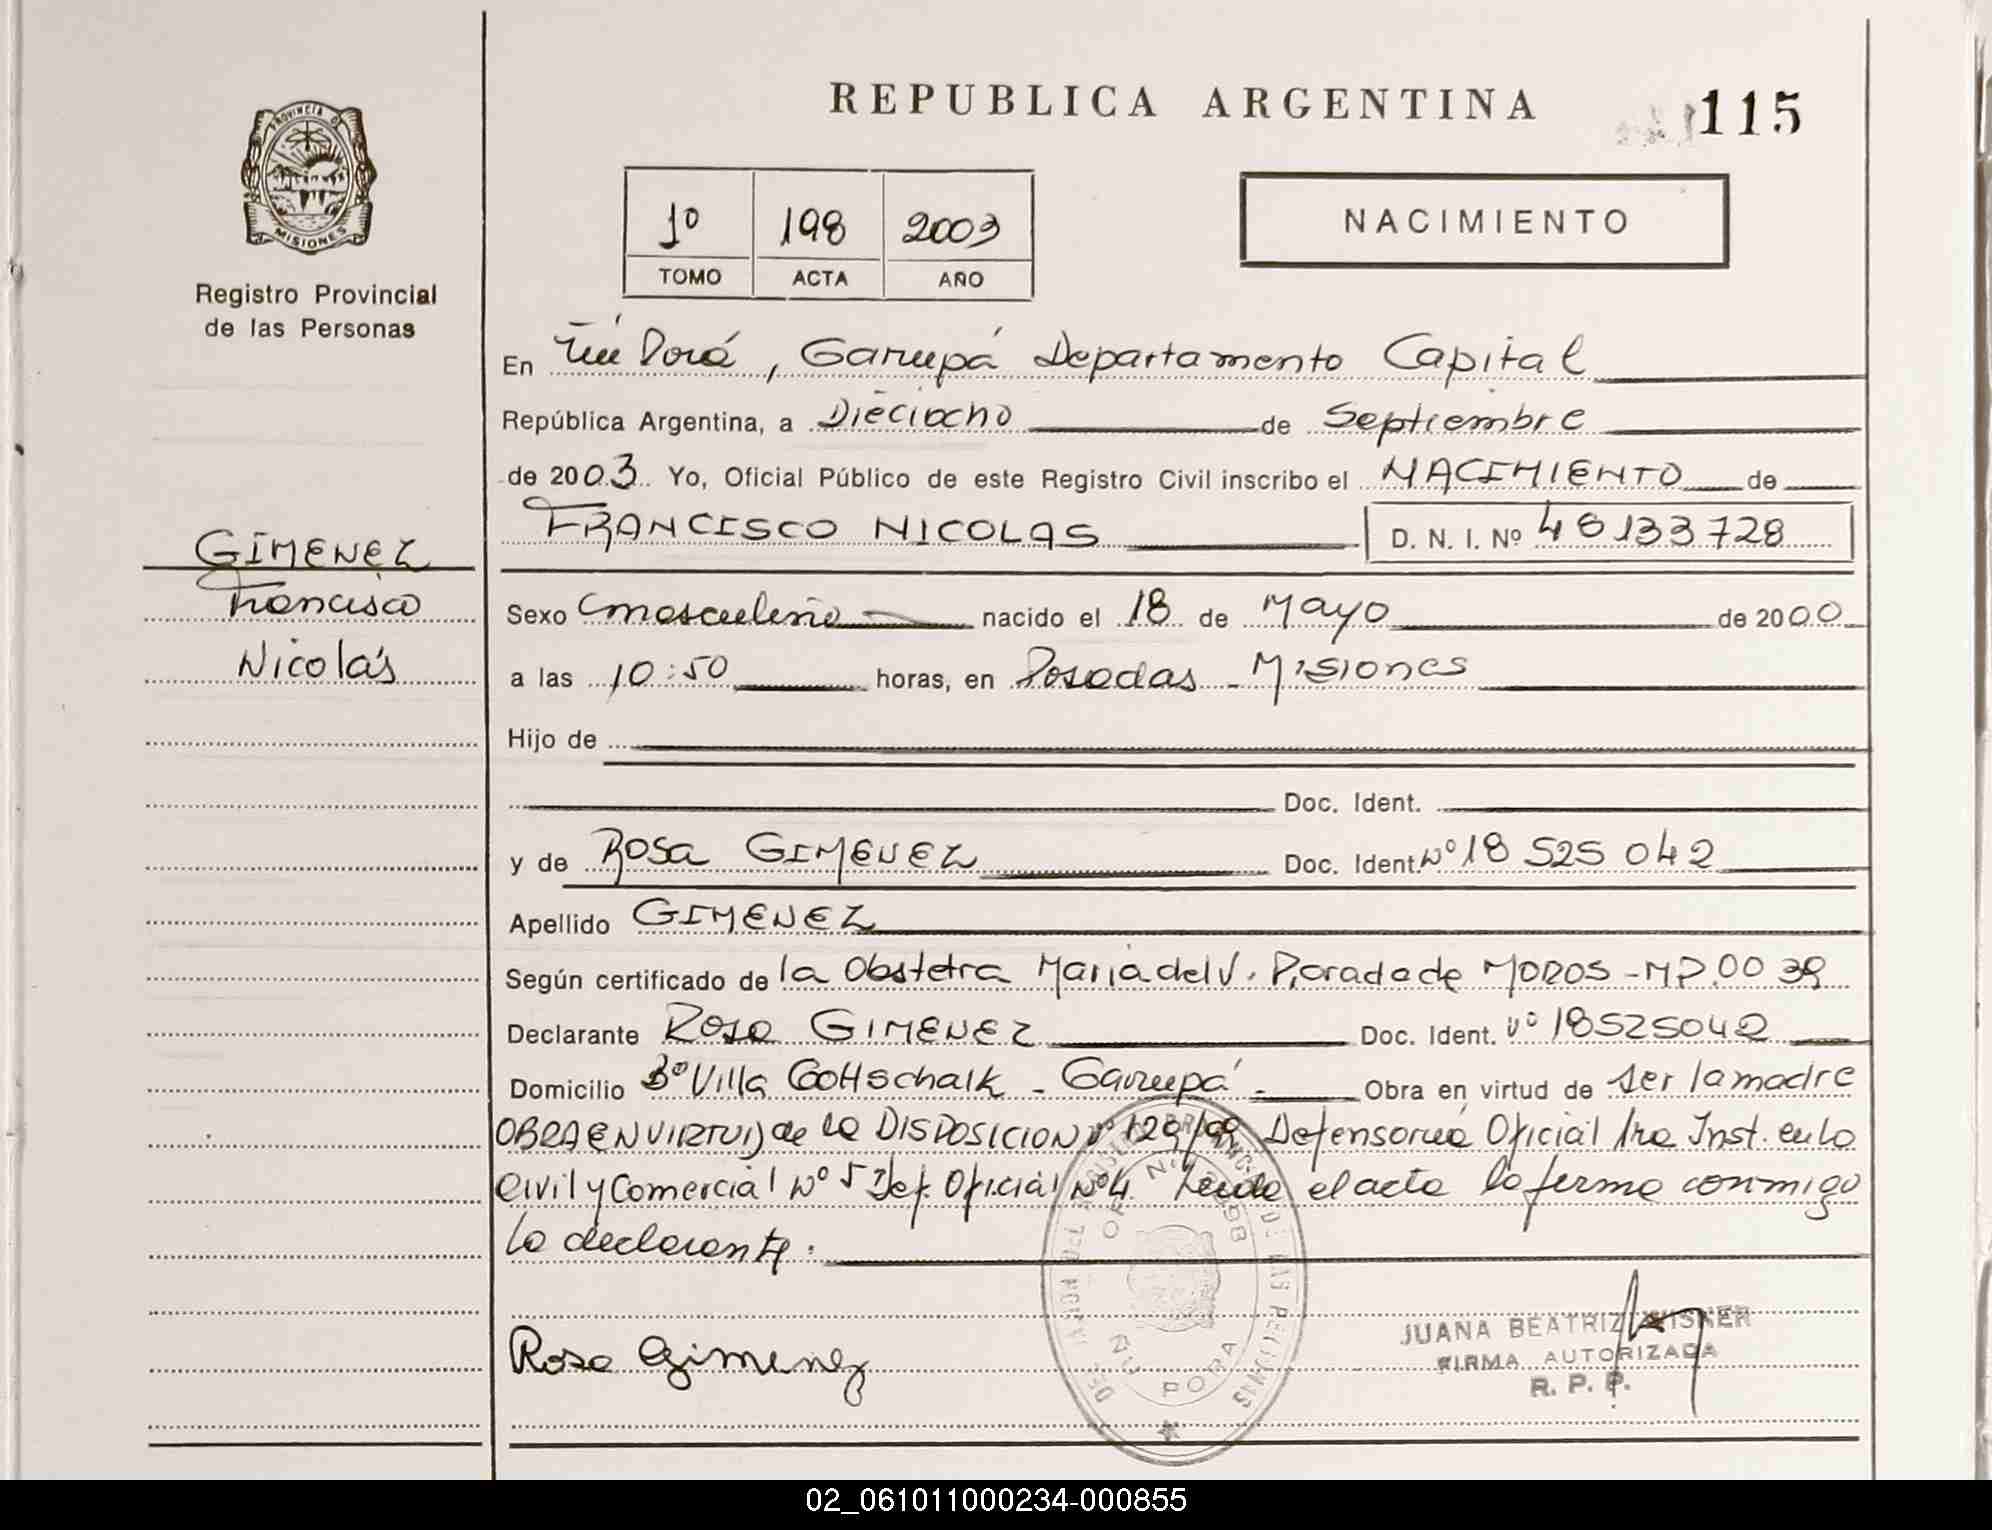 REPUBLICA ARGENTINA
115
PROVINCIA DE
MISIONES
Registro Provincial
de las Personas
1º 198 2003
TOMO ACTA AÑO
NACIMIENTO
En Ñu Porá, Garupá Departamento Capital
República Argentina, a Dieciocho de Septiembre
de 2003 Yo, Oficial Público de este Registro Civil inscribo el NACIMIENTO de
FRANCISCO NICOLAS D. N. I. Nº 48133728
GIMENEZ
Francisco
Nicolás
Sexo masculino nacido el 18 de Mayo de 2000
a las 10:50 horas, en Posadas - Misiones
Hijo de
Doc. Ident.
y de ROSA GIMENEZ Doc. Ident. Nº 18 525 042
Apellido GIMENEZ
Según certificado de la Obstetra Maria del V. Parada de MOROS - MP. 00 39
Declarante Rosa GIMENEZ Doc. Ident. Nº 18525042
Domicilio Bº Villa Gottschalk - Garupá - Obra en virtud de ser la madre
OBRA EN VIRTUD de la DISPOSICION Nº Defensoría Oficial 1ra Inst. en lo
Civil y Comercial Nº 5 Def. Oficial Nº 4. Leída el acta la firma conmigo
la declarante.
Rosa Gimenez
OF. Nº
ÑU PORA
JUANA BEATRIZ
FIRMA AUTORIZADA
R. P. P.
02_061011000234-000855